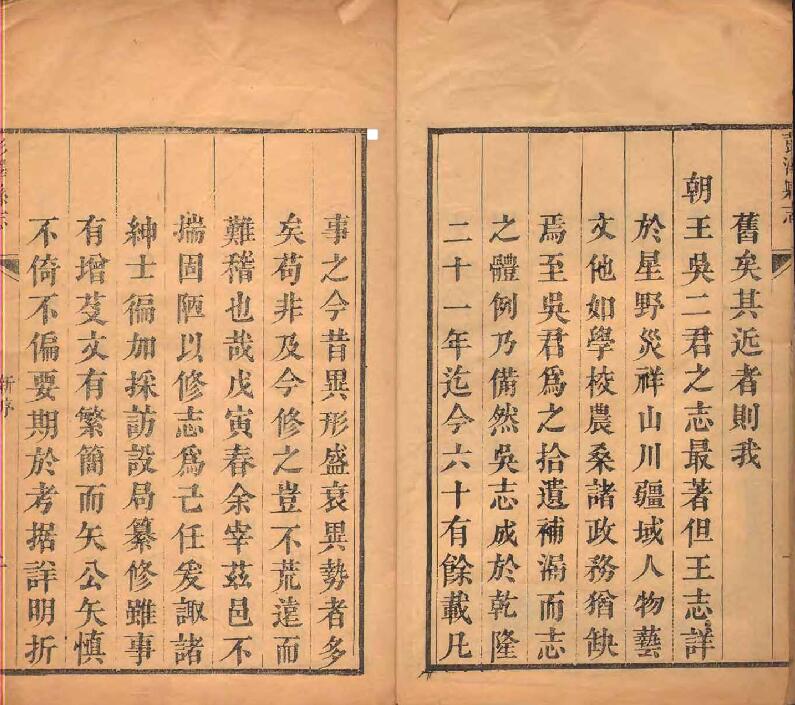 舊矣其近者則我
朝王吳二君之志最著但王志詳
於星野災祥山川疆域人物藝
文他如學校農桑諸政務猶缺
焉至吳君爲之拾遺補漏而志
之體例乃備然吳志成於乾隆
二十一年迄今六十有餘載凡
事之今昔異形盛衰異勢者多
矣苟非及今修之豈不荒遠而
難稽也哉戊寅春余宰茲邑不
揣固陋以修志爲己任爰諏諸
紳士徧加採訪設局纂修雖事
有增芟文有繁簡而矢公矢慎
不倚不偏要期於考据詳明折
新序